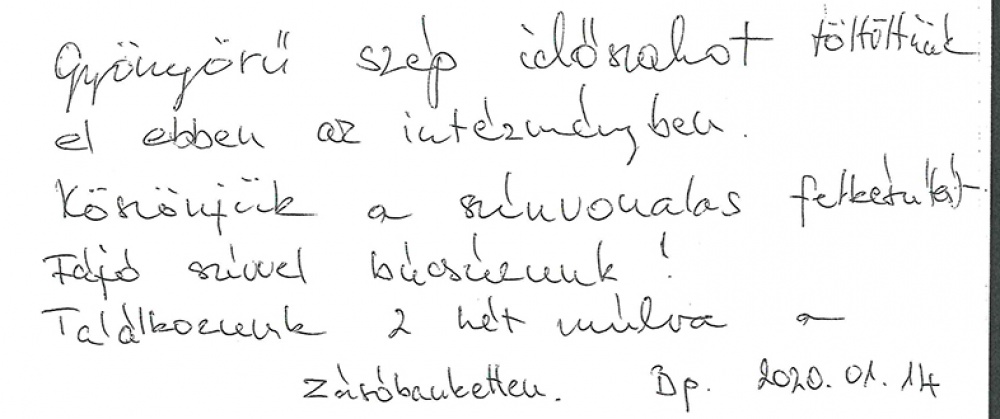 Gyönyörű szép időszakot töltöttünk
el ebben az intézményben.
Köszönjük a színvonalas felkészítést
Fájó szívvel búcsúzunk!
Találkozunk 2 hét múlva a
záróbanketten. Bp. 2020.01.14